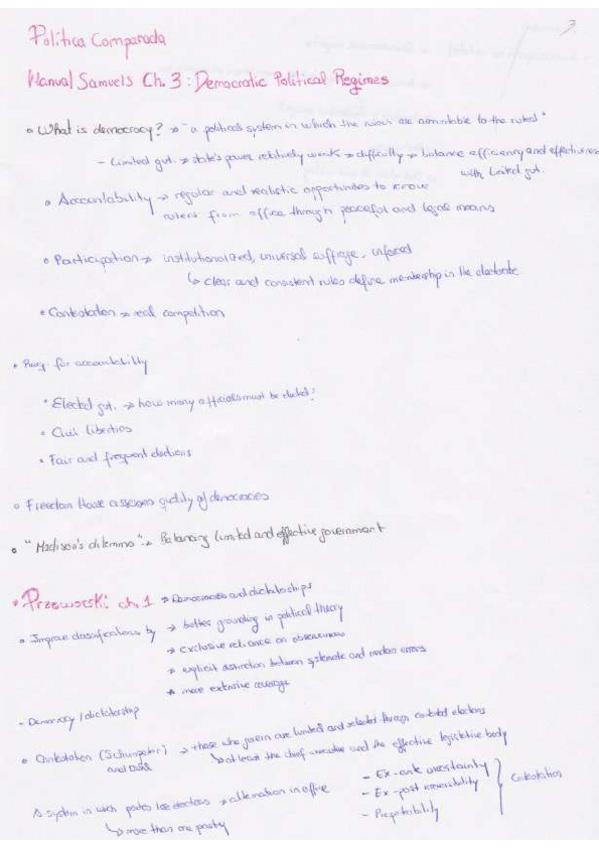 3
Política Comparada
Manual Samuels Ch. 3: Democratic Political Regimes
• What is democracy? → "a political system in which the rulers are accountable to the ruled"
- Limited gvt. → state's power relatively weak → difficulty → balance efficiency and effectiveness
with limited gvt.
• Accountability → regular and realistic opportunities to
rulers from office through peaceful and legal means
• Participation → institutionalized, universal suffrage,
↳ clear and consistent rules define membership in the electorate
• Contestation → real competition
• for accountability
• Elected gvt. → how many officials must be elected?
• Civil liberties
• Fair and frequent elections
• Freedom House assesses quality of democracies
• "Madison's dilemma" → Balancing limited and effective government
• Przeworski ch. 1 → Democracies and dictatorships
• Improve classifications by → better grounding in political theory
→ exclusive reliance on observations
→ explicit distinction between systematic and random errors
→ more extensive coverage
- Democracy / dictatorship
• Contestation (Schumpeter) → those who govern are and selected through contested elections
and Dahl ↳ at least the chief executive and the effective legislative body
A system in which parties lose elections → alternation in office
↳ more than one party
- Ex-ante uncertainty
- Ex-post irreversibility
- Repeatability
Contestation